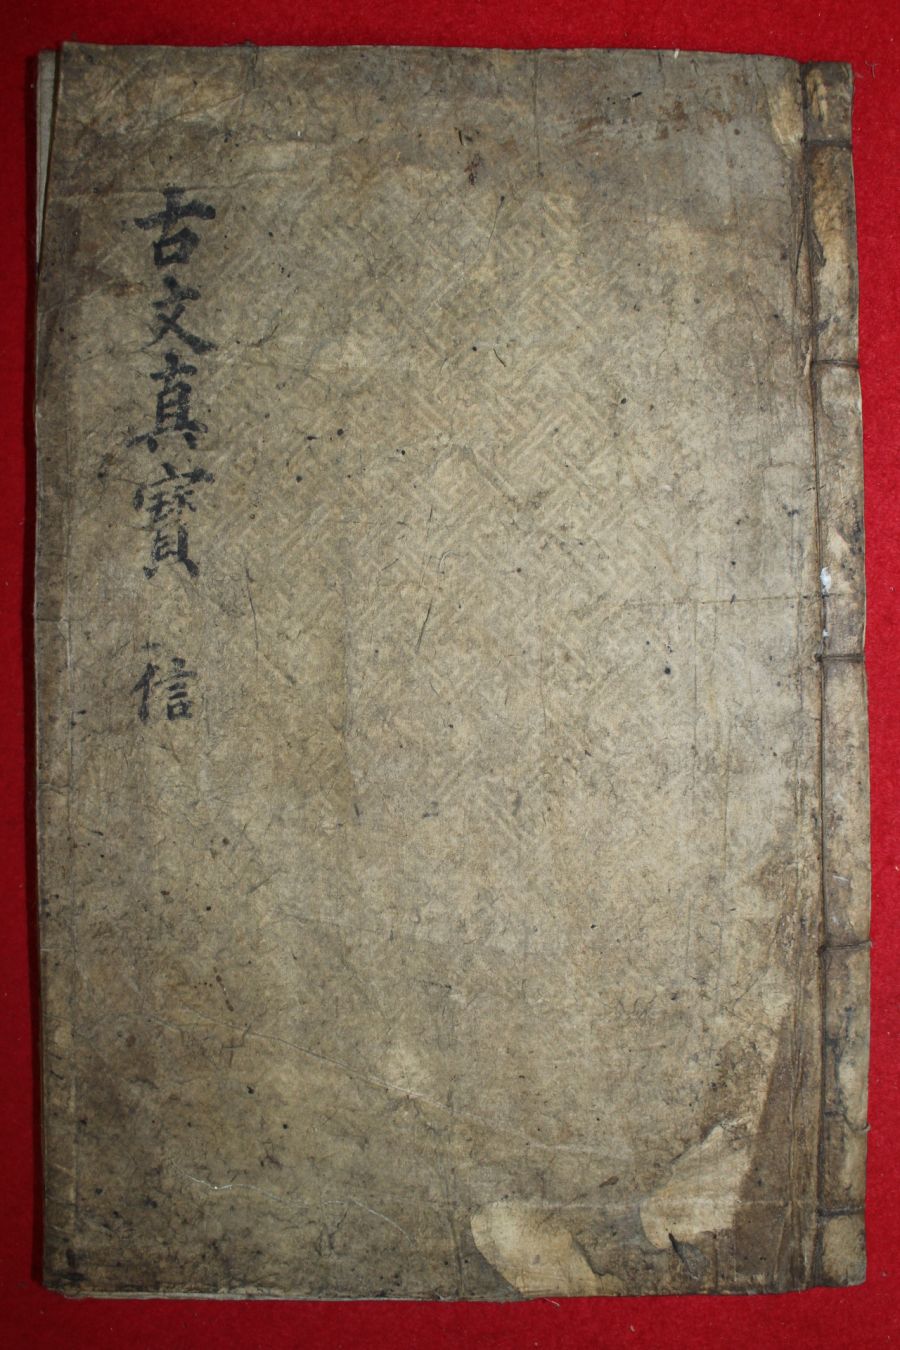 古文真寶 信